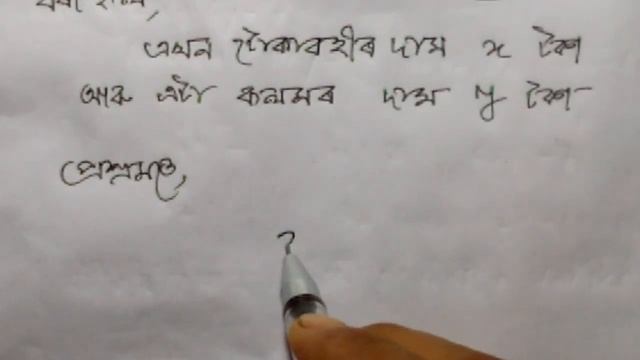 ধৰা হ'ল,
এখন টোকাবহীৰ দাম x টকা
আৰু এটা কলমৰ দাম y টকা
প্ৰশ্নমতে,